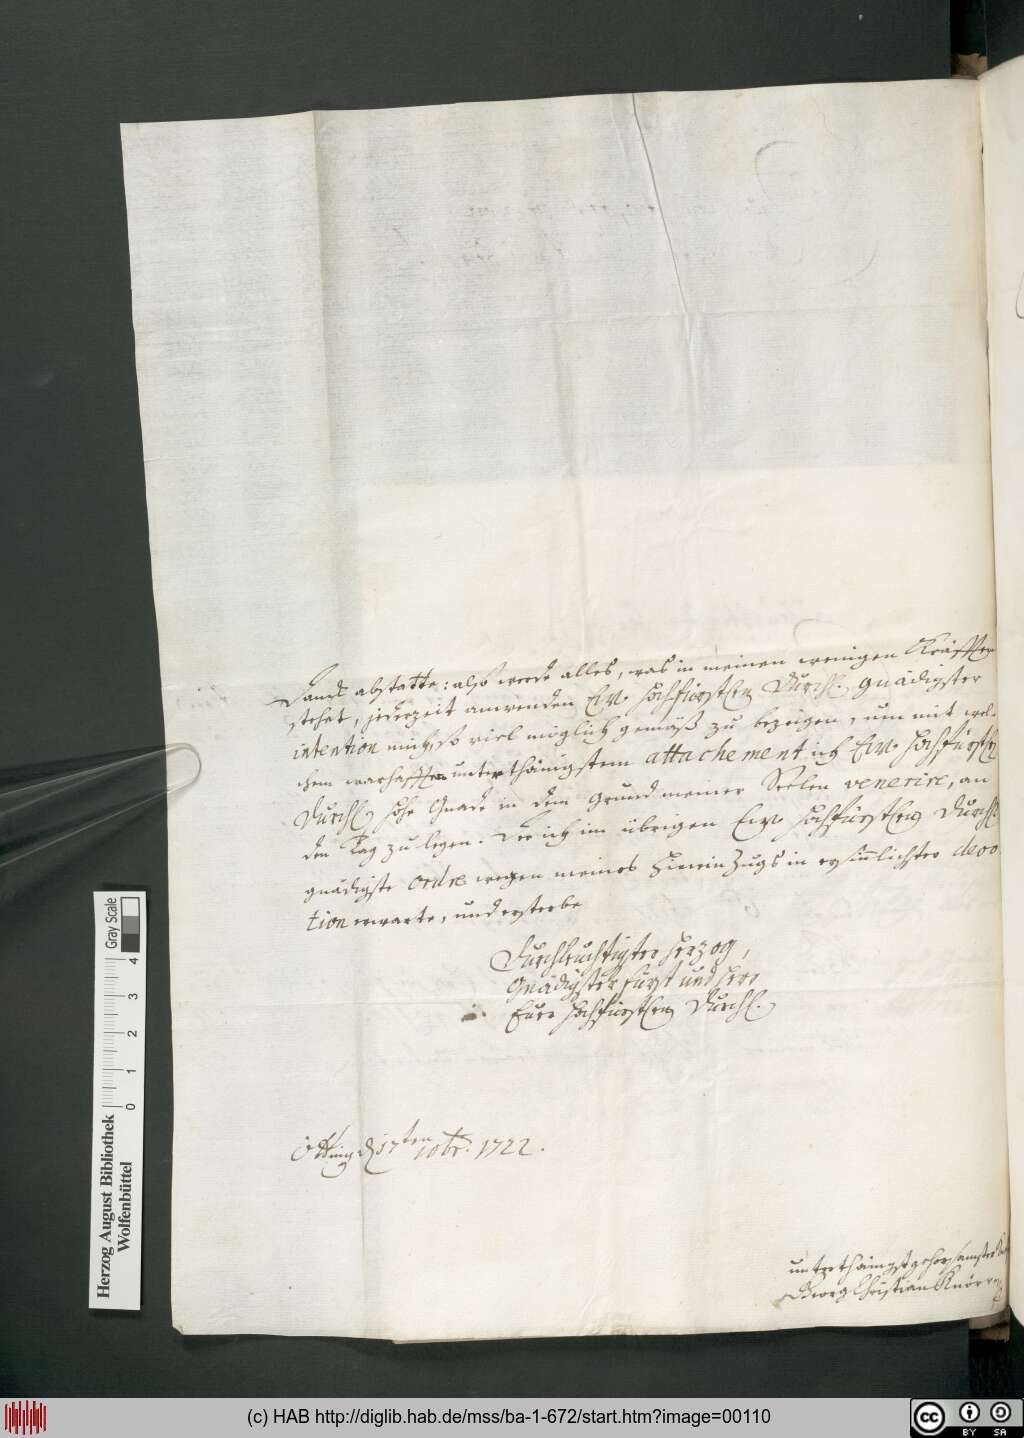 Danck abstatte: also werde alles, was in meinen wenigen Kräfften
stehet, jederzeit anwenden Ew. Hochfürstlen Durchl. gnädigster
intention mich, so viel möglich gemäß zu bezeigen, um mit wel-
chem warhafften unterthänigstem attachement ich Ew. Hochfürstln
Durchl. hohe Gnade in dem Grund meiner Seelen venerire, an
den Tag zu legen. Der ich im übrigen Ew. Hochfürstlen Durchl.
gnädigste ordre wegen meines Hineinzugs in ersinnlichster devo
tion erwarte, und ersterbe
Durchleuchtigster Herzog,
Gnädigster Fürst und Herr
Eurer Hochfürstlen Durchl.
Öttingen d 17ten 10br. 1722.
unterthänigst gehorsamster
Georg Christian Knörr
Herzog August Bibliothek
Wolfenbüttel
0 1 2 3 4
Gray Scale
(c) HAB http://diglib.hab.de/mss/ba-1-672/start.htm?image=00110
cc BY SA